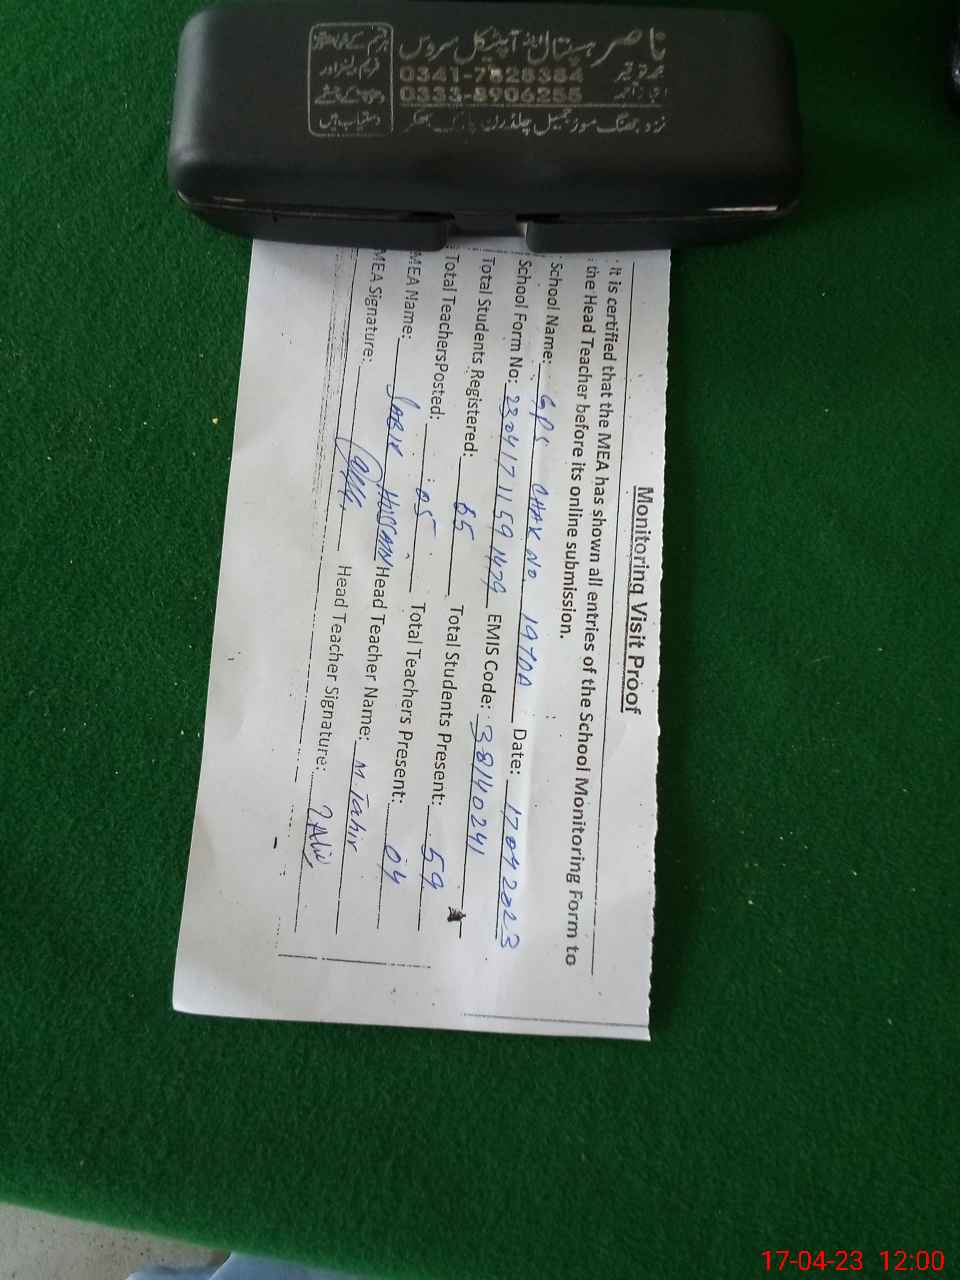 ناصر ہسپتال اینڈ آپٹیکل سروس
0341-7828384
0333-8906255
نزد جھنگ موڑ جمیل چلڈرن پارک بھکر
دستیاب ہیں
Monitoring Visit Proof
It is certified that the MEA has shown all entries of the School Monitoring Form to
the Head Teacher before its online submission.
School Name: GPS CHAK NO 19TDA Date: 17 04 2023
School Form No: 23041711591479 EMIS Code: 38140241
Total Students Registered: 85 Total Students Present: 59
Total TeachersPosted: 05 Total Teachers Present: 04
MEA Name: SABIR HUSSAIN Head Teacher Name: M. Tahir
MEA Signature: Head Teacher Signature:
17-04-23 12:00